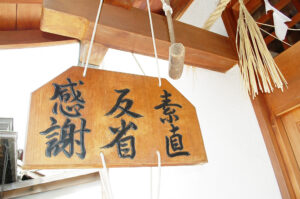 素直
反省
感謝